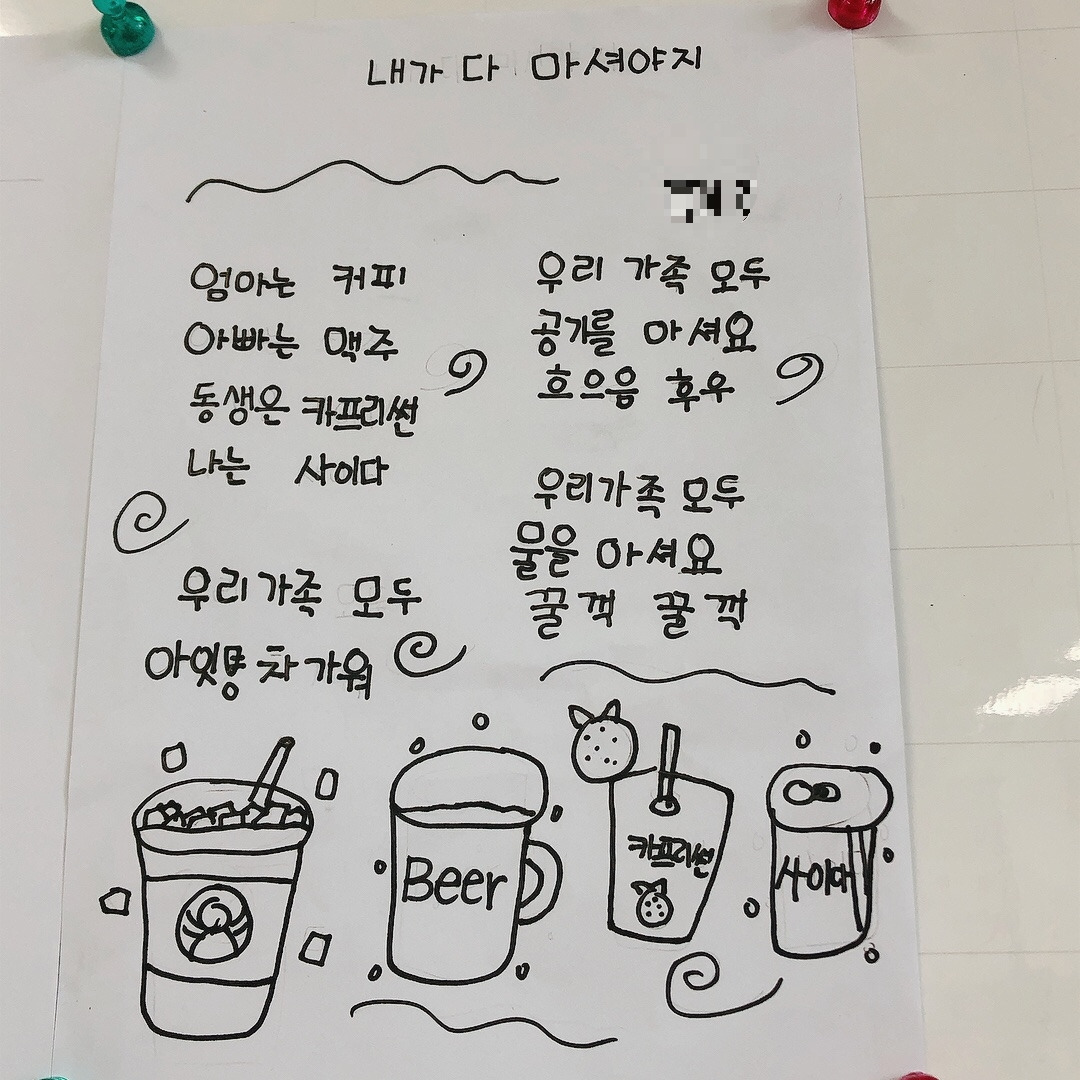 내가 다 마셔야지
엄마는 커피
아빠는 맥주
동생은 카프리썬
나는 사이다
우리가족 모두
아잇몽 차가워
우리 가족 모두
공기를 마셔요
흐으음 후우
우리가족 모두
물을 마셔요
꿀꺽 꿀꺽
Beer
카프리썬
사이다